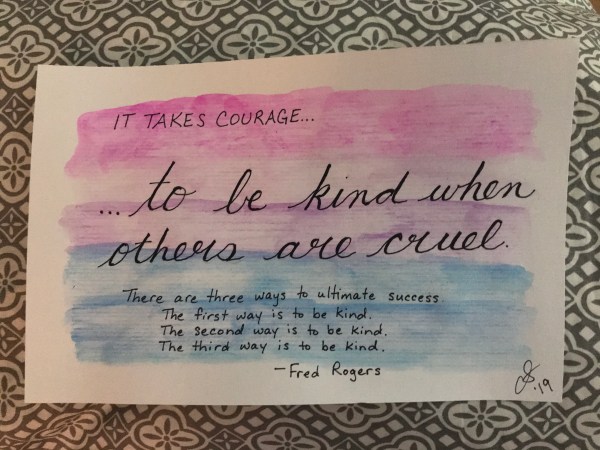 IT TAKES COURAGE...
... to be kind when
others are cruel.
There are three ways to ultimate success.
The first way is to be kind.
The second way is to be kind.
The third way is to be kind.
- Fred Rogers
.19